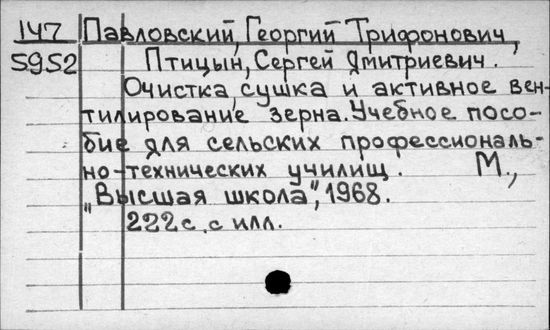 147 Павловский, Георгий Трифонович,
5952 Птицын, Сергей Дмитриевич.
Очистка, сушка и активное вен-
тилирование зерна. Учебное посо-
бие для сельских профессиональ-
но-технических училищ. М.,
„Высшая школа", 1968.
222 с. с илл.